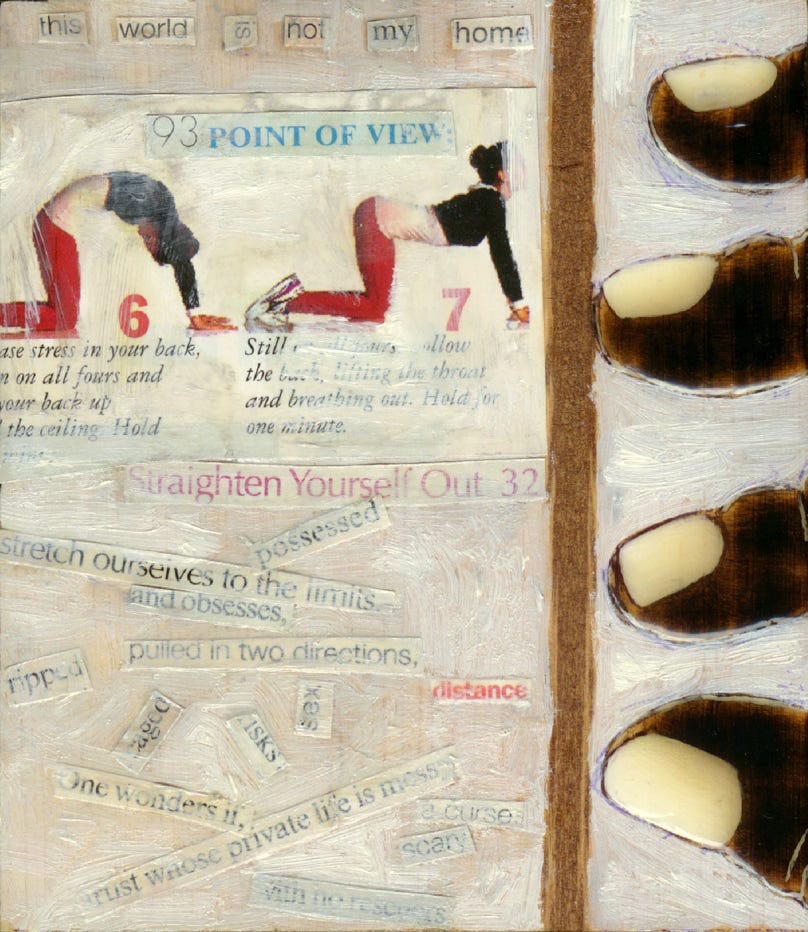 this world is not my home
93 POINT OF VIEW:
6
7
ase stress in your back,
n on all fours and
your back up
the ceiling. Hold
Still on all fours, ollow
the back, lifting the throat
and breathing out. Hold for
one minute.
Straighten Yourself Out 32
possessed
stretch ourselves to the limits
and obsesses,
pulled in two directions,
ripped
distance
sex
aged
risks
One wonders if,
trust whose private life is messy
a curse
scary
with no